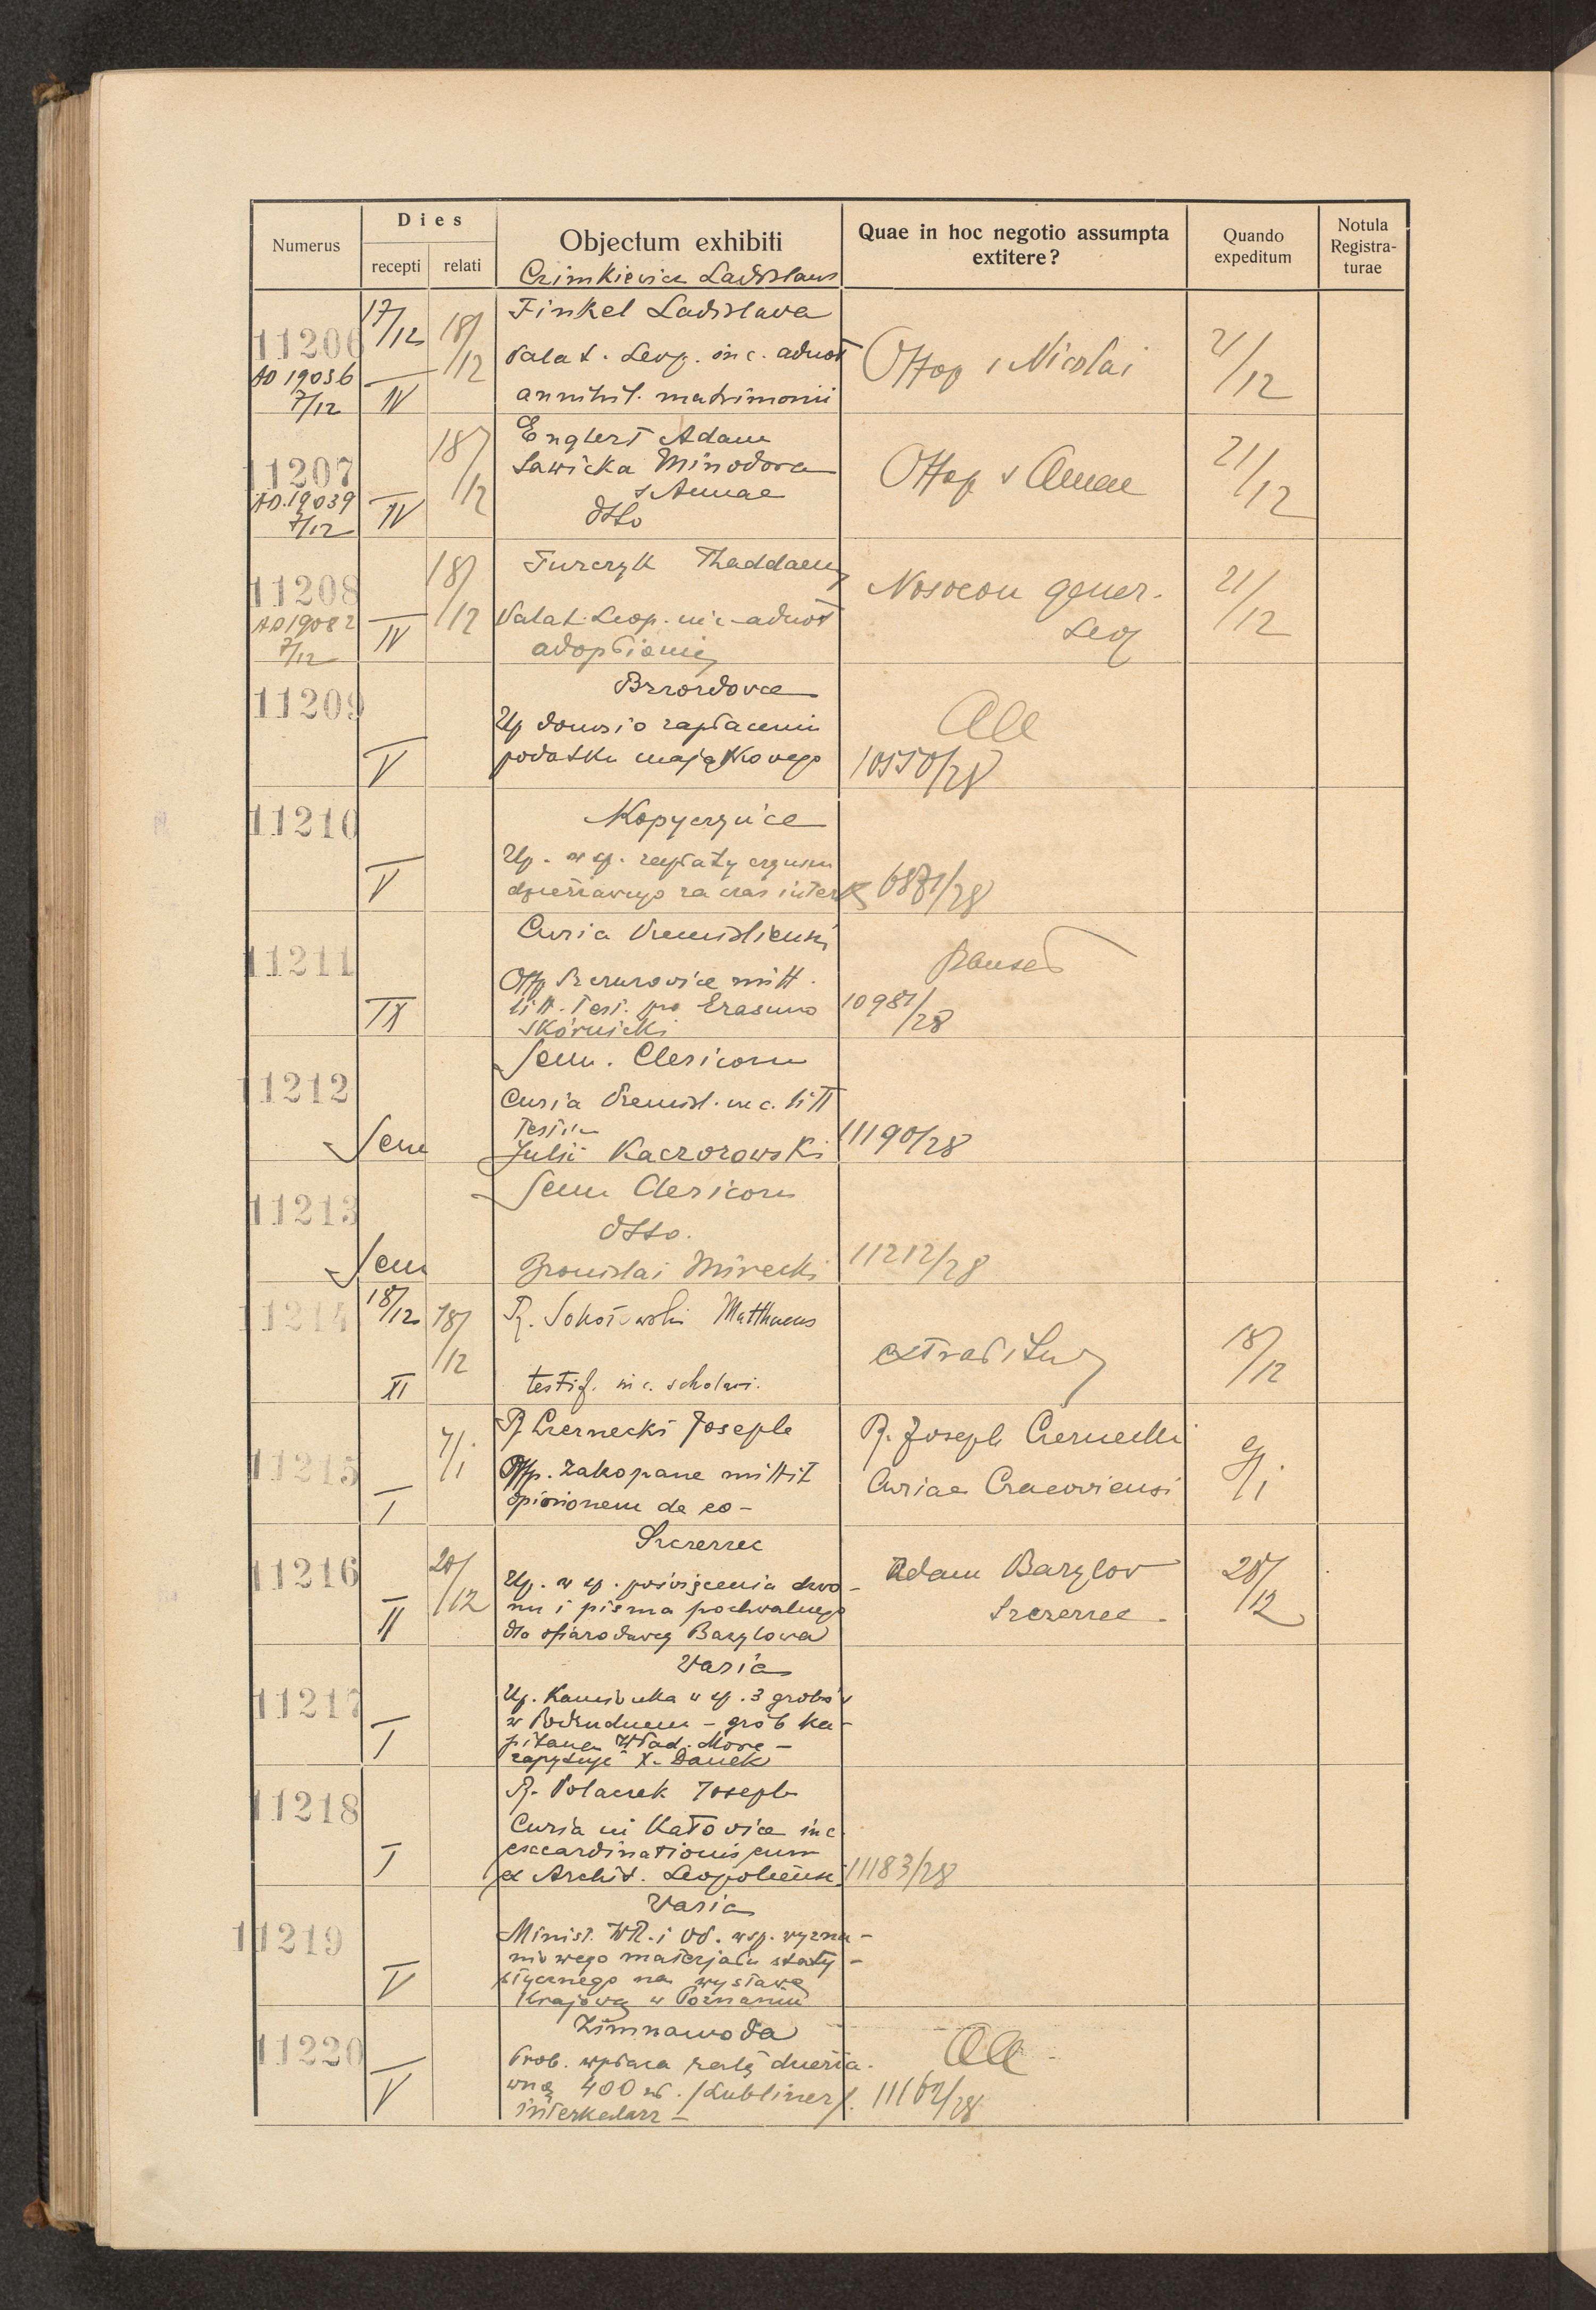 Numerus
Dies
recepti relati
Objectum exhibiti
Quae in hoc negotio assumpta
extitere?
Quando
expeditum
Notula
Registra-
turae
Ladislaus
11206
AD 19036
7/12
17/12
IV
18/12
Finkel Ladislava
Palat. Leop. inc. adnot
annihil. matrimonii
Offop s Nicolai
21/12
11207
AD.19039
7/12
IV
18/12
Englert Adam
Sawicka Minodora
s Annae
dtto
Offop s Annae
21/12
11208
AD 19082
7/12
IV
18/12
Turczyk Thaddaeus
Palat. Leop. inc. adnot
adoptionis
Nosocom gener.
Leop
21/12
11209
V
Brzozdovce
Up donosi o zapłaceniu
podatku majątkowego
10550/28
11210
V
Kopyczyńce
Up. w sp. zapłaty czynszu
dzierżawnego za czas interk
6871/28
11211
IX
Curia Premisliensis
Offp mitt.
litt. test. pro Erasmo
Skórnicki
10981/28
11212
Sem
Sem. Clericorum
Curia Premisl. inc. litt
testim
Julii Kaczorowski
11190/28
11213
Sem
Sem Clericorum
dtto.
Bronislai Mirecki
11212/28
11214
18/12
XI
18/12
R. Sokołowski Matthaeus
testif. inc. scholari.
extraditum
18/12
11215
I
7/1
R Czernecki Joseph
Offp. Zakopane mittit
opinionem de eo-
R. Joseph Czernecki
Curiae Cracoviensi
9/1
11216
II
20/12
Szczerzec
Up. w sp. poświęcenia dzwo-
nu i pisma pochwalnego
dla ofiarodawcy Barylowa
Adam Barylov
Szczerzec.
20/12
11217
I
Varia
Up. Kamionka w sp. 3 grobów
w - grób ka-
pitana Wład.
zapytuje X. Danek
11218
I
R. Polaczek Joseph
Curia in Katovice inc
excardinationis eum
ex Archid. Leopoliensi
11183/28
11219
V
Varia
Minist. WR. i OP. wsp. wyzna-
niowego materjału staty-
stycznego na wystawę
Krajową w Poznaniu
11220
V
Zimnawoda
Prob. wpłaca ratę dzierża-
wną 400 zł. /Lubliner/.
interkalarz -
11162/28